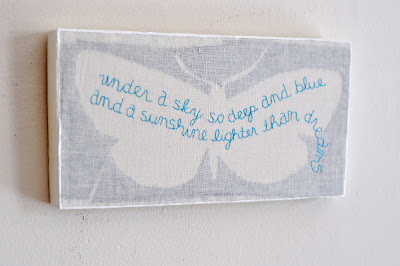 under a sky so deep and blue
and a sunshine lighter than dreams